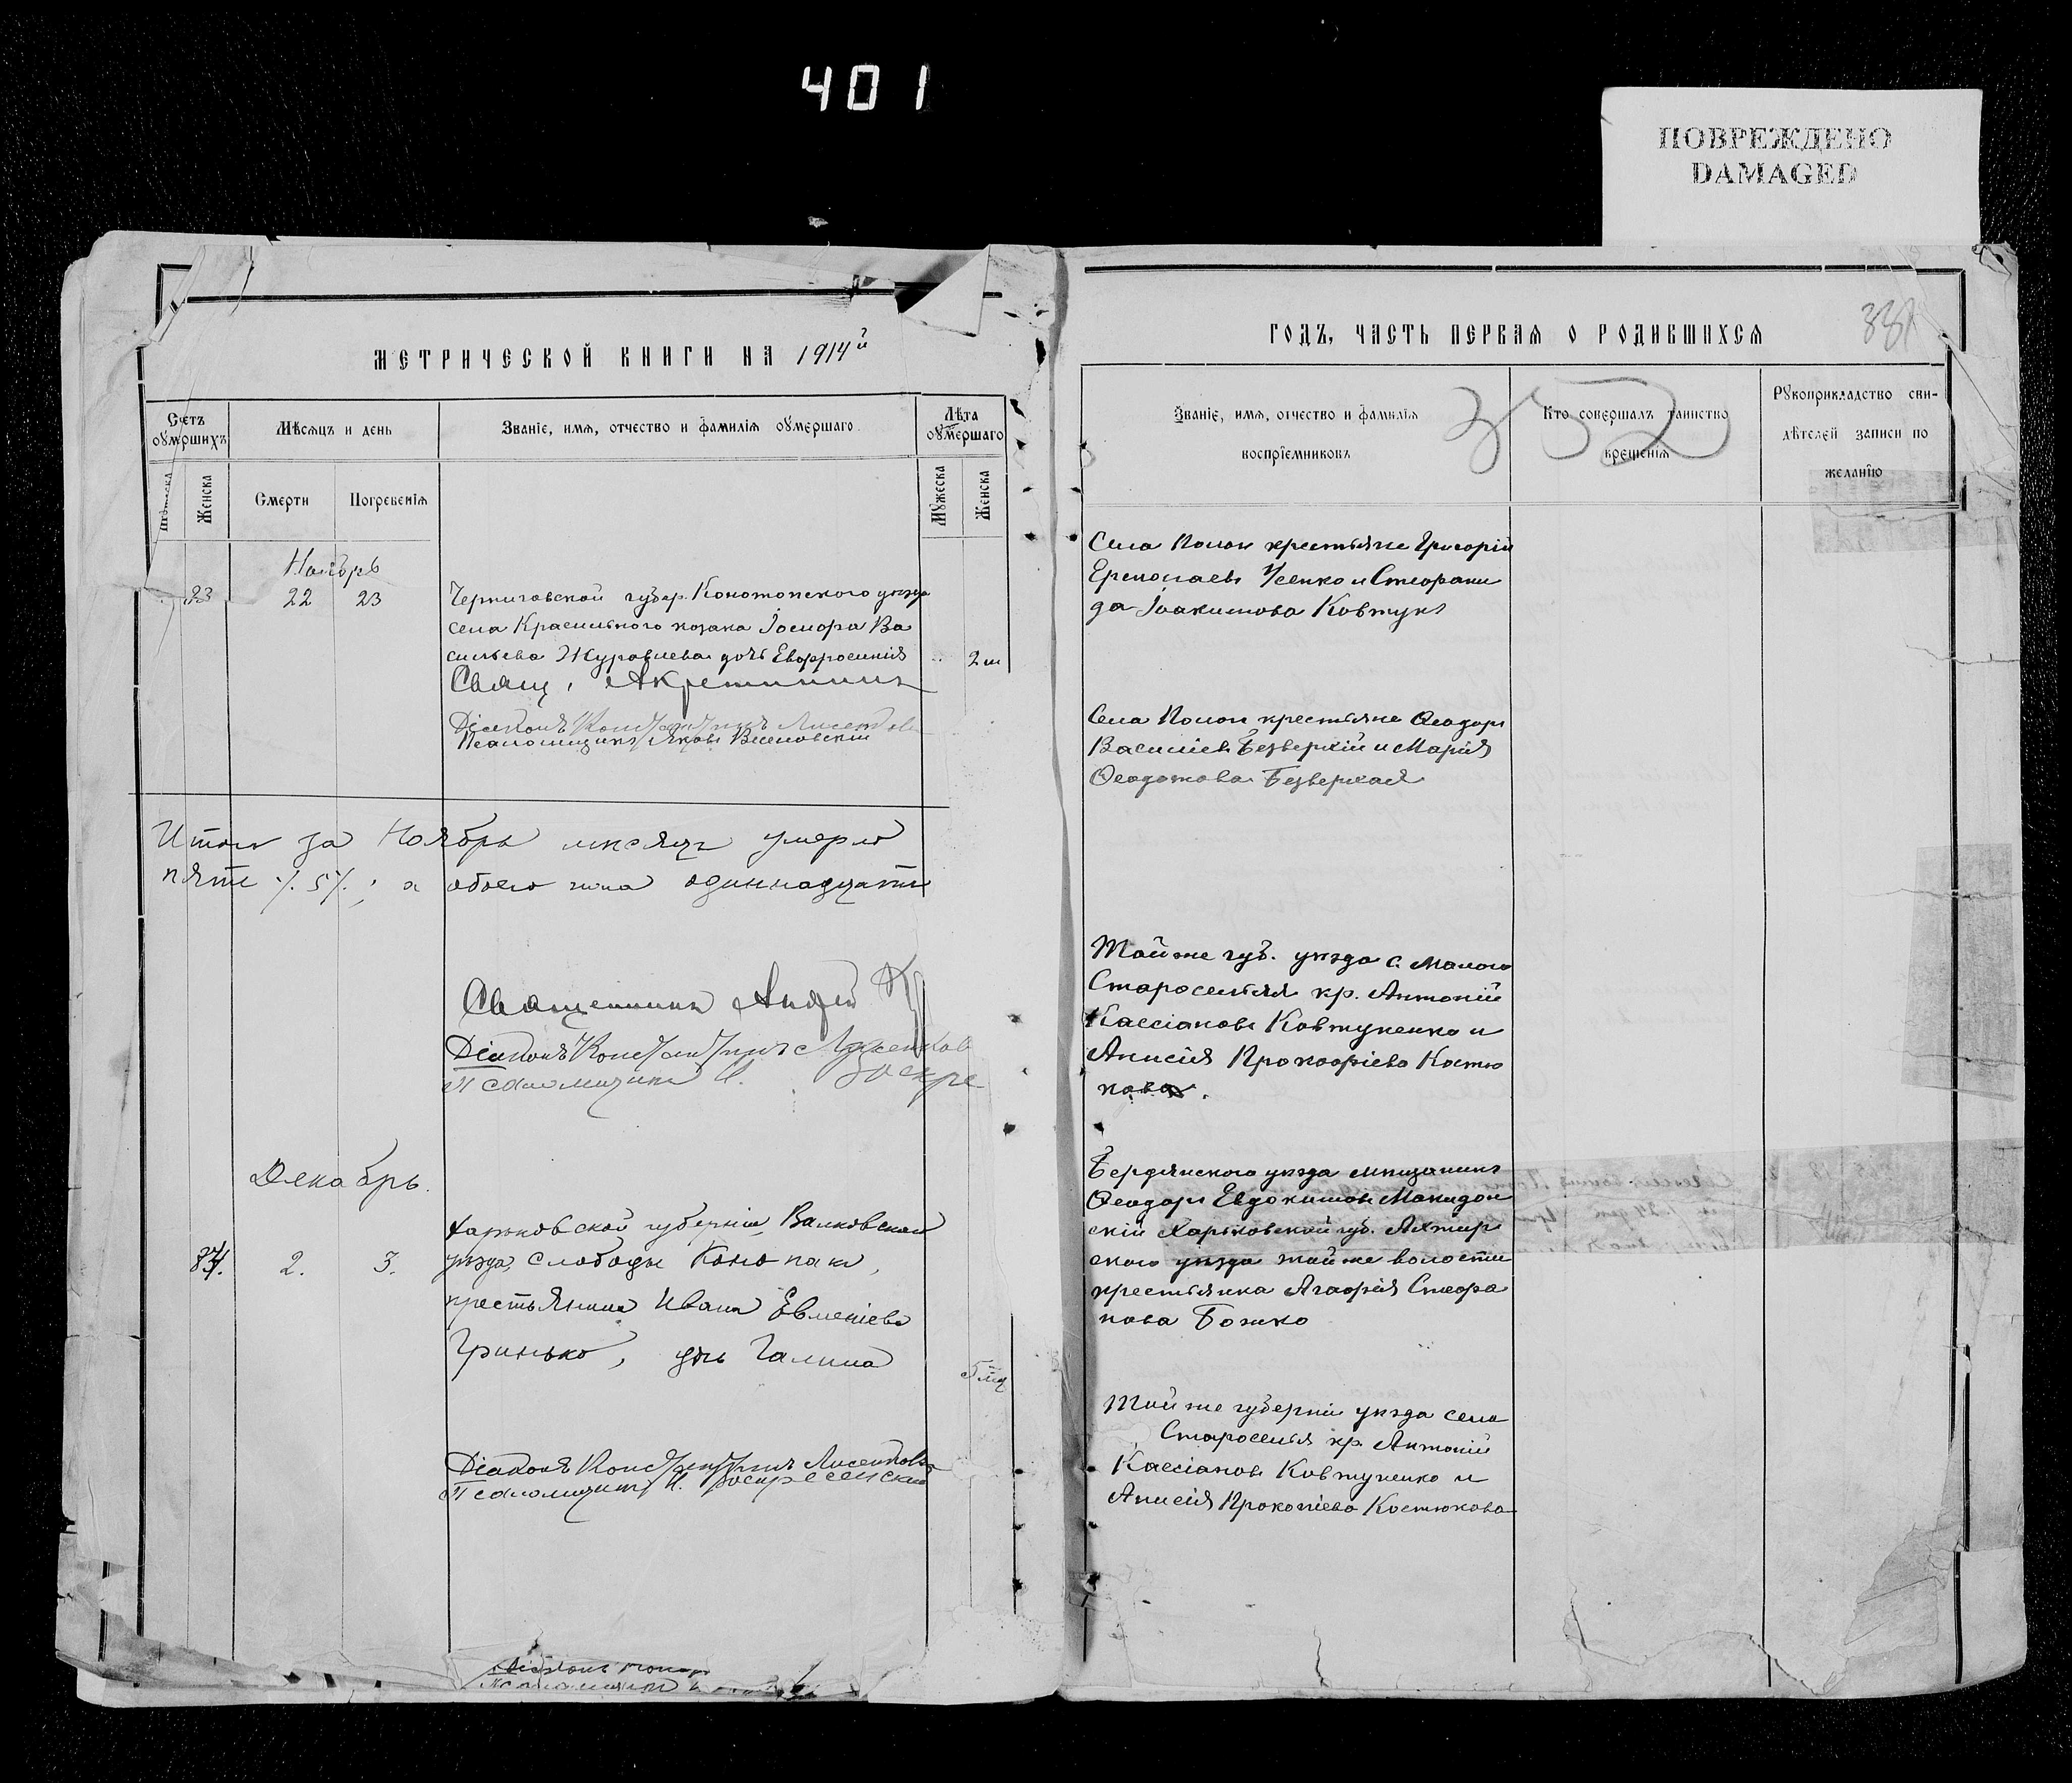 401
ПОВРЕЖДЕНО
DAMAGED
МЕТРИЧЕСКОЙ КНИГИ НА 1914й
Счетъ умршихъ
Мѣсяцъ и день
Званіе, имя, отчество и фамилія умершаго.
Лѣта умершаго
Женска
Смерти
Погребенія
Мужеска
Женска
Ноябрь
23 22 23
Черниговской губер. Конотопского уѣзда
села Красильного козака Іосифа Ва
сильева Журавлева дочь Евфросинія
2 м
Свящ.
Діаконъ Константинъ Лисенков
Псаломщикъ Яковъ Веселовскій
Итого за Ноябрь мѣсяцъ умерло
пять ./. 5 /. ; а обоего пола одиннадцать
Священникъ Андрей
Діаконъ Константинъ Лисенков
Псаломщикъ И. Воскре
Декабрь.
Харьковской губерніи, Валковскаго
уѣзда, слободы Коло
2. 3.
крестьянина Ивана Евменіева
Гринько, дочь Галина
5 мц
Діаконъ Константинъ Лисенковъ
Псаломщикъ И. Воскресенскій
ГОДЪ, ЧАСТЬ ПЕРВАЯ О РОДИВШИХСЯ
352
Званіе, имя, отчество и фамилія воспріемниковъ
Кто совершалъ таинство крещенія
Рукоприкладство свидѣтелей записи по желанію
Села Попои крестьяне Григорій
Усенко и Стефани
да Іоакимова Ковтунъ
Села Попои крестьяне Ѳеодоръ
Василіевъ Безверхій и Марія
Ѳеодотова Безверхая
Той же губ. уѣзда с. Малого
Староселья кр. Антоній
Кассіановъ Ковтуненко и
Анисія Прокофіева Костю
кова.
Бердянского уѣзда мѣщанинъ
Ѳеодоръ Евдокимовъ Македон
скій Харьковской губ. Ахтыр
ского уѣзда той же волости
крестьянка Агафія Стефа
нова Божко
Той же губерніи уѣзда села
Староселья кр. Антоній
Кассіановъ Ковтуненко и
Анисія Прокопіева Костюкова